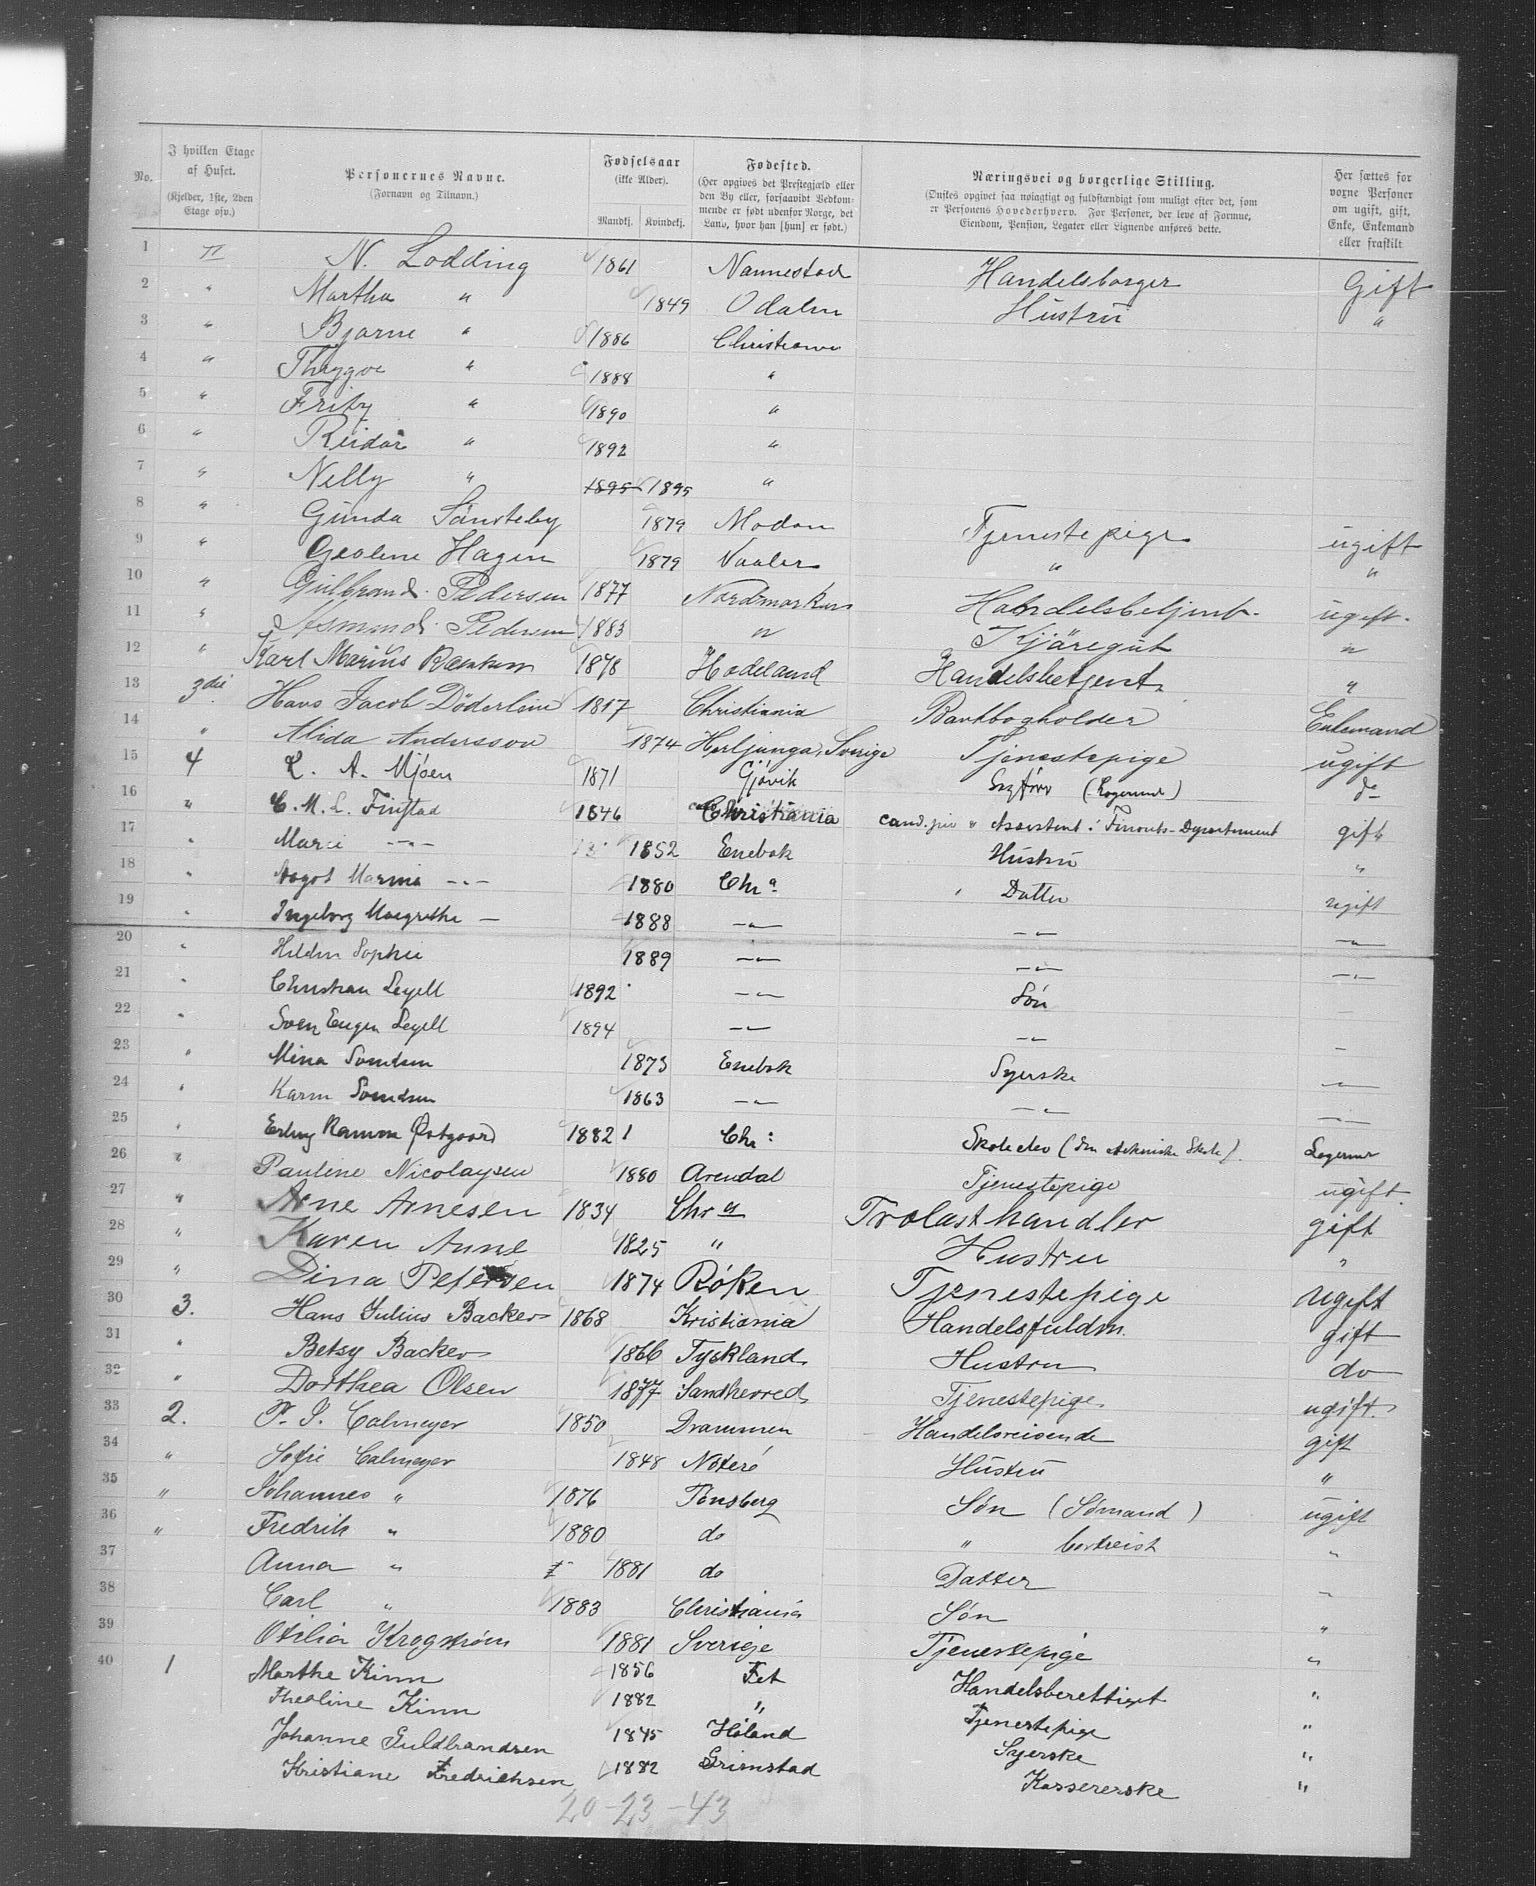 No.
I hvilken Etage af Huset. (Kjelder, 1ste, 2den Etage osv.)
Personernes Navne. (Fornavn og Tilnavn.)
Fødselsaar (ikke Alder). Mandkj. Kvindekj.
Fødested. (Her opgives det Prestegjæld eller den By eller, forsaavidt Vedkommende er født udenfor Norge, det Land, hvor han [hun] er født.)
Næringsvei og borgerlige Stilling. (Ønskes opgivet saa nøiagtigt og fuldstændigt som muligt efter det, som er Personens Hovederhverv. For Personer, der leve af Formue, Eiendom, Pension, Legater eller Lignende anføres dette.
Her sættes for voxne Personer om ugift, gift, Enke, Enkemand eller fraskilt
1 II N. Lodding 1861 Nannestad Handelsborger Gift
2 " Martha " 1849 Odalen Hustru "
3 " Bjarne " 1886 Christiania
4 " Thrygve " 1888 "
5 " Fritz " 1890 "
6 " Reidar " 1892 "
7 " Nelly " 1895 1895 "
8 " Gunda Sönsteby 1879 Modum Tjenestepige ugift
9 " Geoline Hagen 1879 Vaaler " "
10 " Gulbrand Pedersen 1877 Nordmarken Handelsbetjent ugift.
11 " Asmund Pedersen 1883 " Kjøregut "
12 " Karl Marius 1878 Hadeland Handelsbetjent "
13 3die Hans Jacob Döderlein 1817 Christiania Bankbogholder Enkemand
14 " Alida Andersson 1874 Herljunga, Sverige Tjenestepige ugift
15 4 L. A. Mjøen 1871 Gjøvik (Logerende) do
16 " C. M. L. Finstad 1846 Christiania cand. jur " Assistent i Finants-Departement gift
17 " Marie -"- 1852 Enebak Hustru "
18 " Aagot Marina -"- 1880 Chr a Datter ugift
19 " Ingeborg Margrethe - 1888 -"- -"- -"-
20 " Hilda Sophie 1889 -"- -"- -"-
21 " Christian Seyell 1892 -"- Søn -
22 " Sven Eugen Seyell 1894 -"- -"- -
23 " Mina Svendsen 1873 Enebak Syerske -"-
24 " Karen Svendsen 1863 -"- -"- -"-
25 " Erling Østgaard 1882 Chr: Skoleelev (den tekniske Skole). Logerende
26 " Pauline Nicolaysen 1880 Arendal Tjenestepige ugift.
27 " Arne Arnesen 1834 Chr a Trælasthandler gift
28 " Karen Anne 1825 " Hustru "
29 " Dina Petersen 1874 Røken Tjenestepige ugift
30 3. Hans Julius Backer 1868 Kristiania Handelsfuldm. gift
31 " Betsy Backer 1866 Tyskland Hustru do
32 " Dorthea Olsen 1877 Sandherred Tjenestepige. ugift.
33 2. P. J. Calmeyer 1850 Drammen Handelsreisende gift
34 " Sofie Calmeyer 1848 Nøterø Hustru "
35 " Johannes " 1876 Tønsberg Søn (Sømand) ugift
36 " Fredrik " 1880 do " bortreist "
37 Anna " 1881 do Datter "
38 Carl " 1883 Christiania Søn "
39 Otilia Krogstrøm 1881 Sverige Tjenestepige "
40 1 Marthe Kinn 1856 Fet Handelsberettiget "
Thealine Kinn 1882 " Tjenestepige "
Johanne Guldbrandsen 1845 Høland Syerske "
Kristiane Fredrichsen 1882 Grimstad Kassererske "
20 - 23 - 43